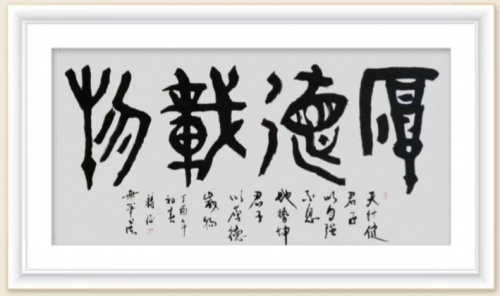 厚德載物
天行健
君子
以自强
不息
地势坤
君子
以厚德
載物
丁酉年
初春